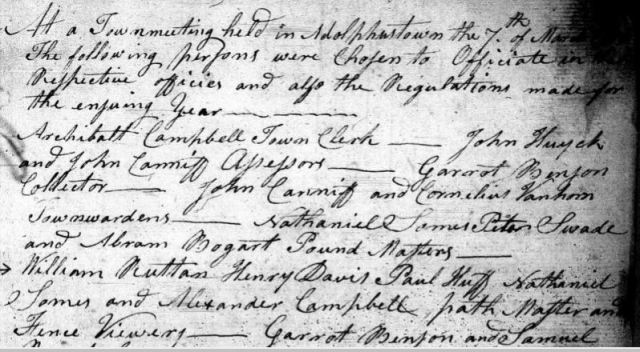 At a Townmeeting held in Adolphustown the 7.th of March
The following persons were Chosen to Officiate in
Respective officies and also the Regulations made for
the ensuing Year
Archibatt Campbell Town Clerk — John Huyck
and John Canniff Assessors — Garrot Benson
Collector — John Canniff and Cornelius Vanhorn
Townwardens — Nathaniel Somes Peter Swade
and Abram Bogart Pound Masters —
William Ruttan Henry Davis Paul Huff Nathaniel
Somes and Alexander Campbell path Master and
Fence Viewers — Garrot Benson and Samuel